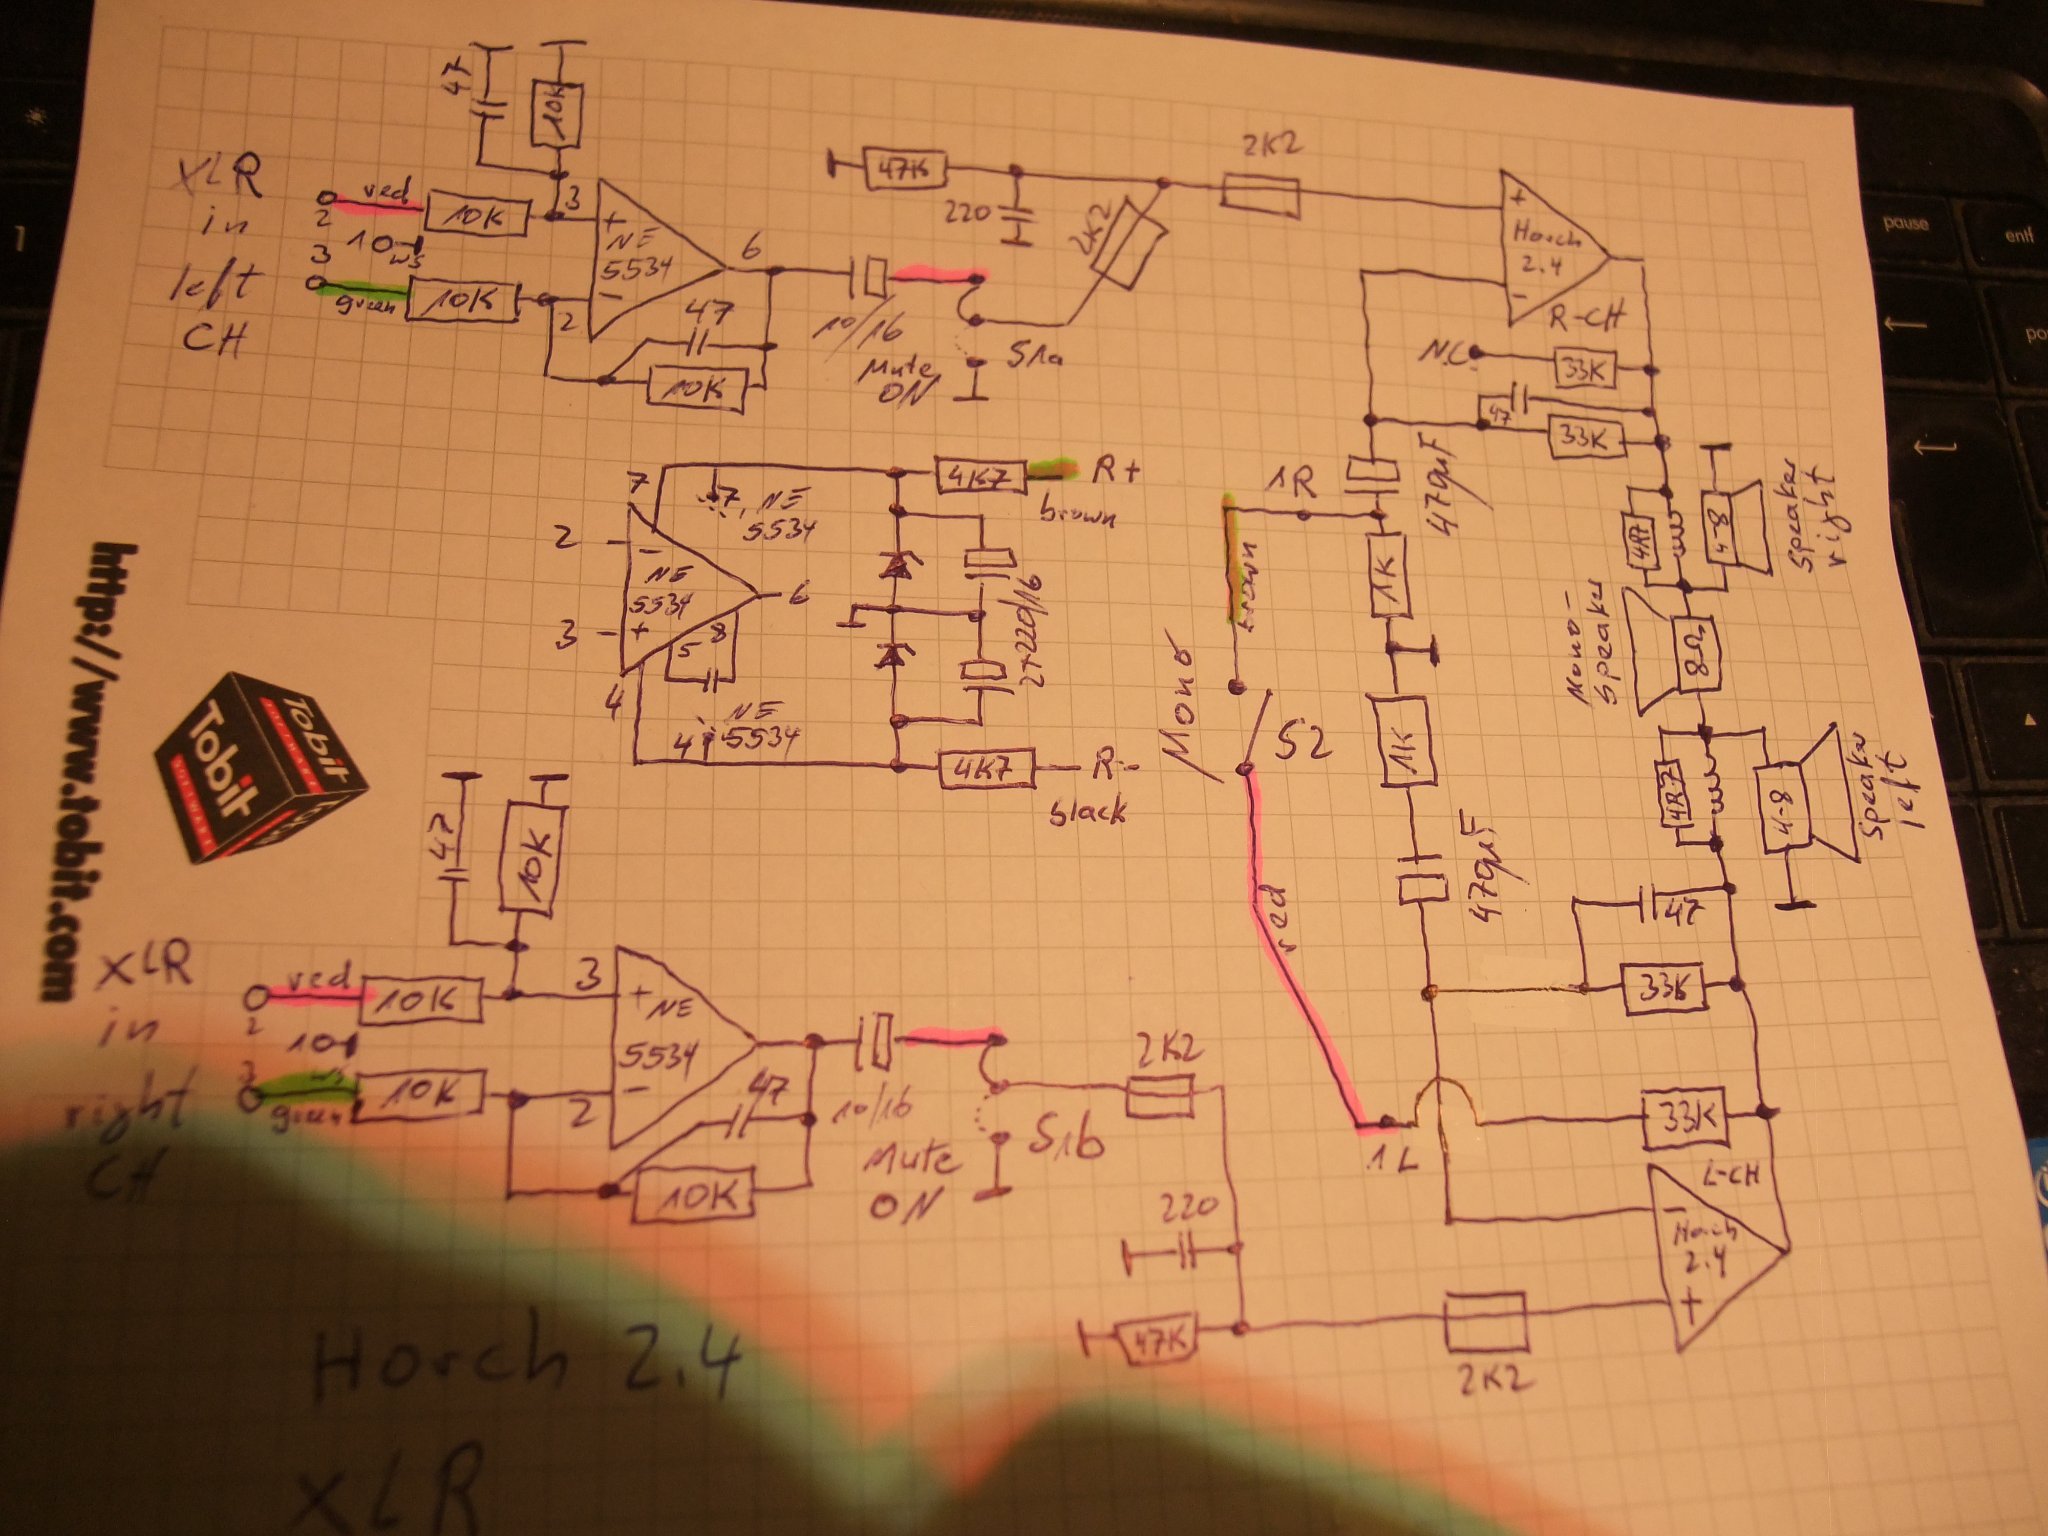 47
10K
XLR
in
left
CH
2
red
10K
3
+
NE
5534
6
10
ws
3
green
10K
2
-
47
10K
10/16
Mute
ON
S1a
47K
220
2K2
2K2
+
Horch
2.4
-
R-CH
N.C.
33K
47
33K
470µF
1R
1K
brown
4R7
4-8
Speaker
right
Mono-
Speaker
8Ω
7
4K7
R+
brown
7, NE
5534
2
-
NE
5534
6
3
+
5
8
4
4, NE
5534
2x220/16
4K7
R-
black
Mono
S2
1K
470µF
red
4R7
4-8
Speaker
left
47
33K
1L
33K
L-CH
-
Horch
2.4
+
http://www.tobit.com
Tobit
SOFTWARE
Tobit
SOFTWARE
47
10K
XLR
in
right
CH
2
red
10K
3
+
NE
5534
10
ws
3
green
10K
2
-
47
10K
10/16
Mute
ON
S1b
2K2
220
47K
2K2
Horch 2.4
XLR
pause
entf
1